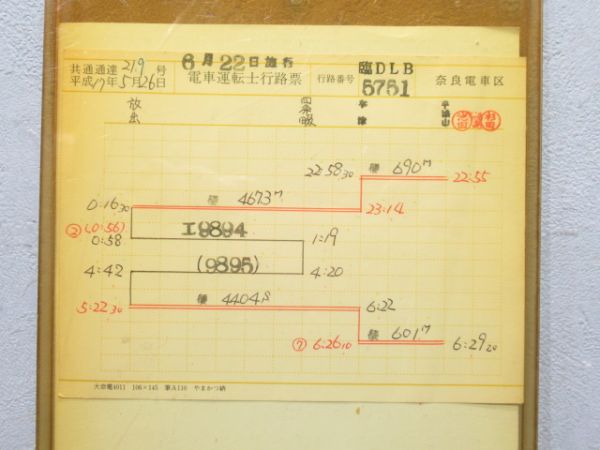 共通通達 219 号
平成 17 年 5 月 26 日
6月22日施行
電車運転士行路票
行路番号
臨DLB
5751
奈良電車区
放出
木津
22:58 30
690M
22:55
4673M
0:16 30
23:14
② (0:56)
0:58
工9894
1:19
(9895)
4:42
4:20
4404S
5:22 30
6:22
601M
⑦ 6:26 10
6:29 20
大奈電4011 106×145 筆A110 やまかつ納